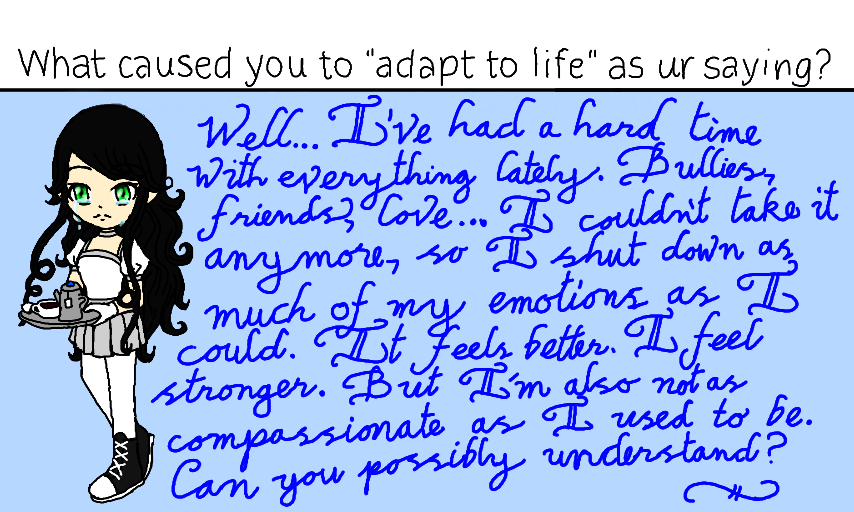 What caused you to "adapt to life" as ur saying?
Well... I've had a hard time
with everything lately. Bullies,
friends, love... I couldn't take it
anymore, so I shut down as
much of my emotions as I
could. It feels better. I feel
stronger. But I'm also not as
compassionate as I used to be.
Can you possibly understand?